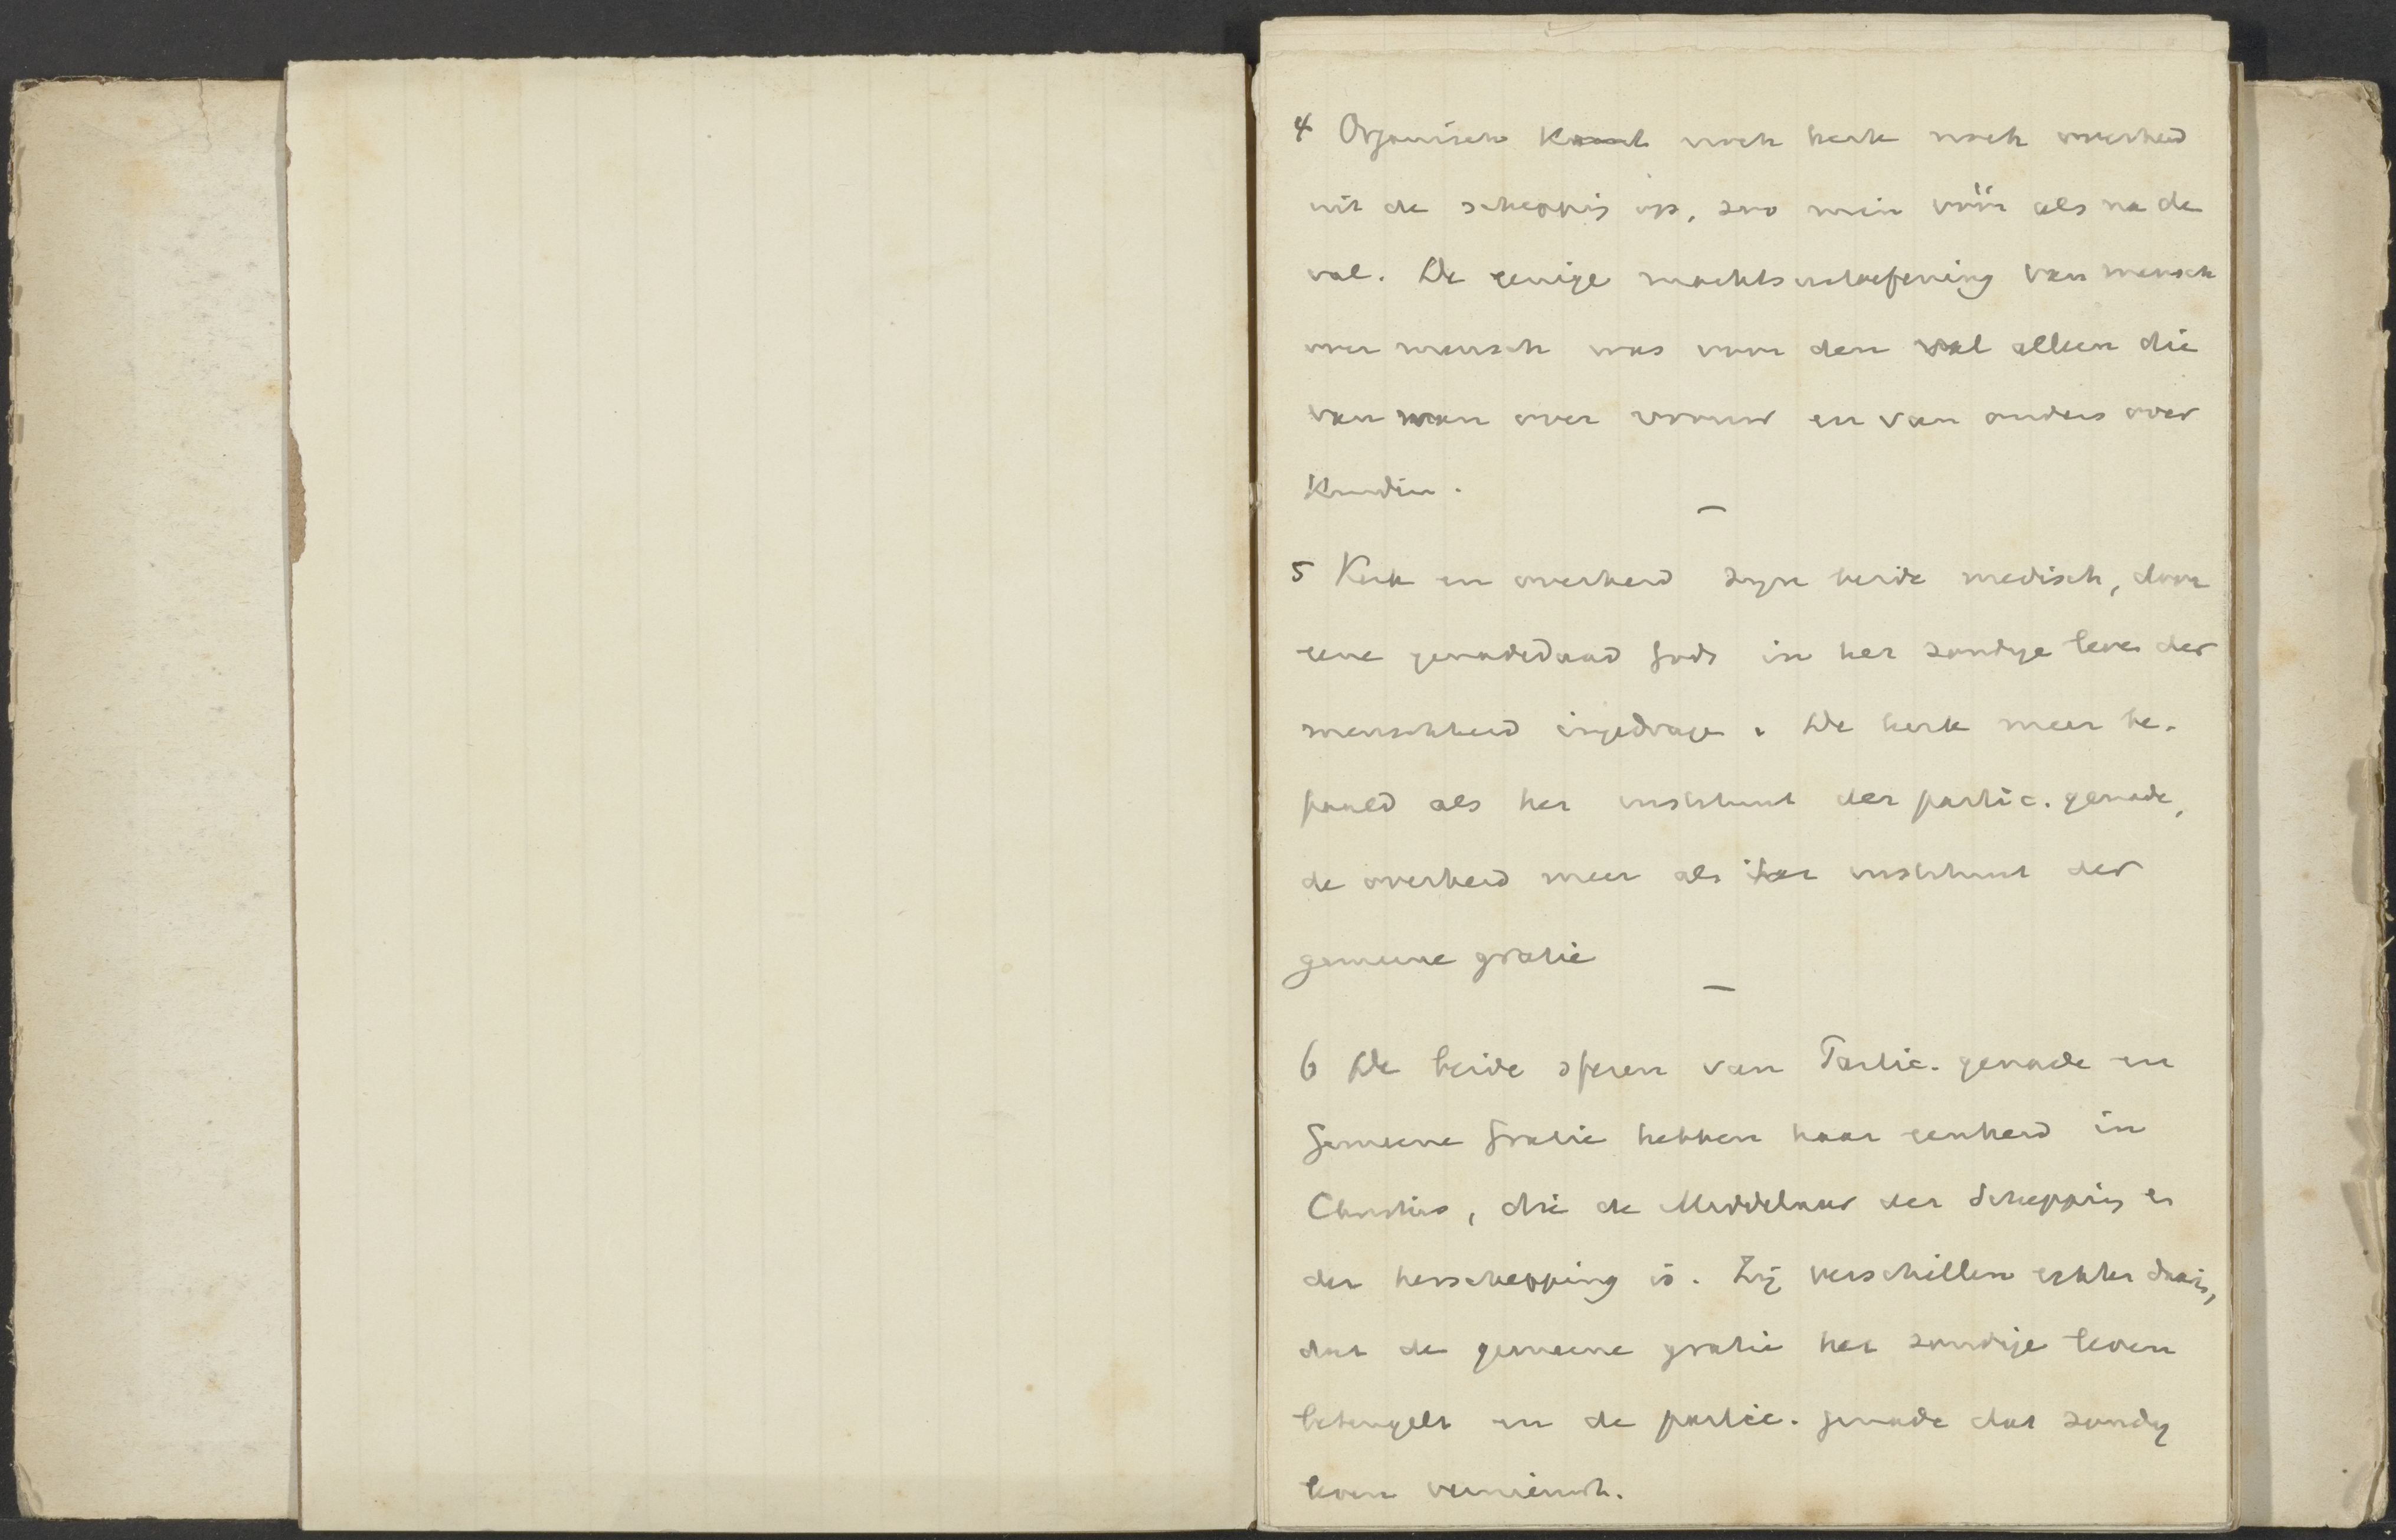 4 Organisch komt noch kerk noch overheid
uit de schepping op, zoo min vóór als na de
val. De eenige machtsuitoefening van mensch
over mensch was voor den val alleen die
van man over vrouw en van ouders over
Kinderen.
—
5 Kerk en overheid zijn beide medisch, door
eene genadedaad Gods in het zondige leven der
menschheid ingedragen. De kerk meer be-
paald als het instituut der partic. genade,
de overheid meer als het instituut der
gemeene gratie
—
6 De beide sferen van Partic. genade en
Gemeene Gratie hebben haar eenheid in
Christus, die de Middelaar der Schepping en
der herschepping is. Zij verschillen echter daarin,
dat de gemeene gratie het zondige leven
beteugelt en de partic. genade dat zondig
leven vernieuwt.